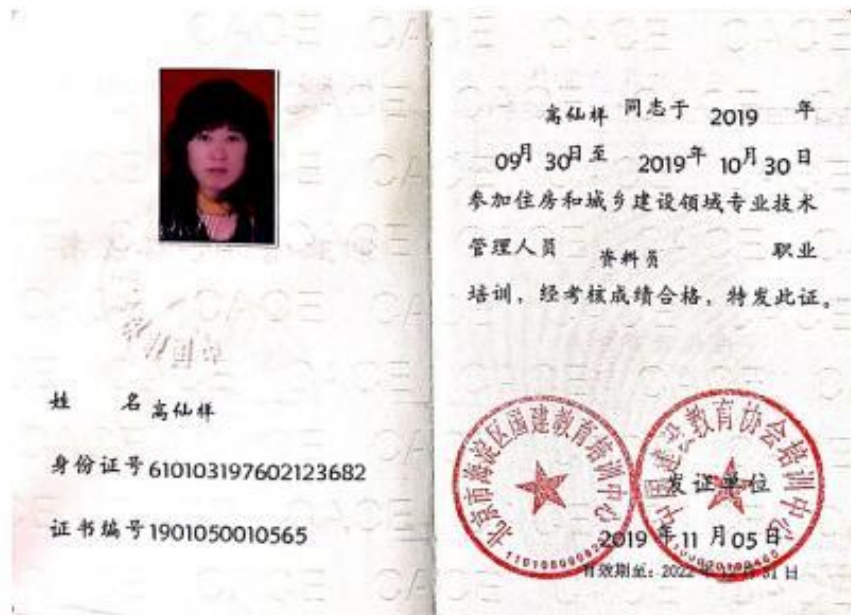 姓 名 高仙样
身份证号 610103197602123682
证书编号 1901050010565
高仙样 同志于 2019 年
09月 30日至 2019年 10月 30日
参加住房和城乡建设领域专业技术
管理人员 资料员 职业
培训，经考核成绩合格，特发此证。
北京市海淀区国建教育培训中心
中国建设教育协会培训中心
发证单位
2019 年 11 月 05 日
有效期至：2022 年 12 月 31 日